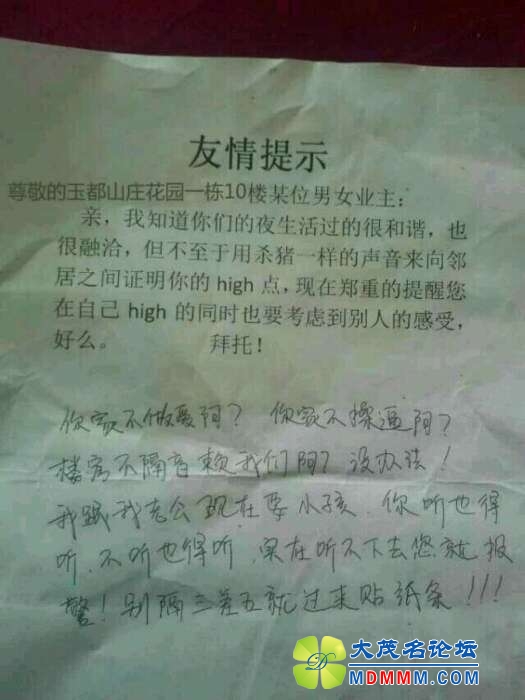 友情提示
尊敬的玉都山庄花园一栋10楼某位男女业主：
亲，我知道你们的夜生活过的很和谐，也
很融洽，但不至于用杀猪一样的声音来向邻
居之间证明你的 high 点，现在郑重的提醒您
在自己 high 的同时也要考虑到别人的感受，
好么。 拜托！
你家不做爱阿？ 你家不操逼阿？
楼房不隔音赖我们阿？没办法！
我跟我老公现在要小孩．你听也得
听．不听也得听．实在听不下去您就报
警！别隔三差五就过来贴纸条！！！
大茂名论坛
MDMMM.COM